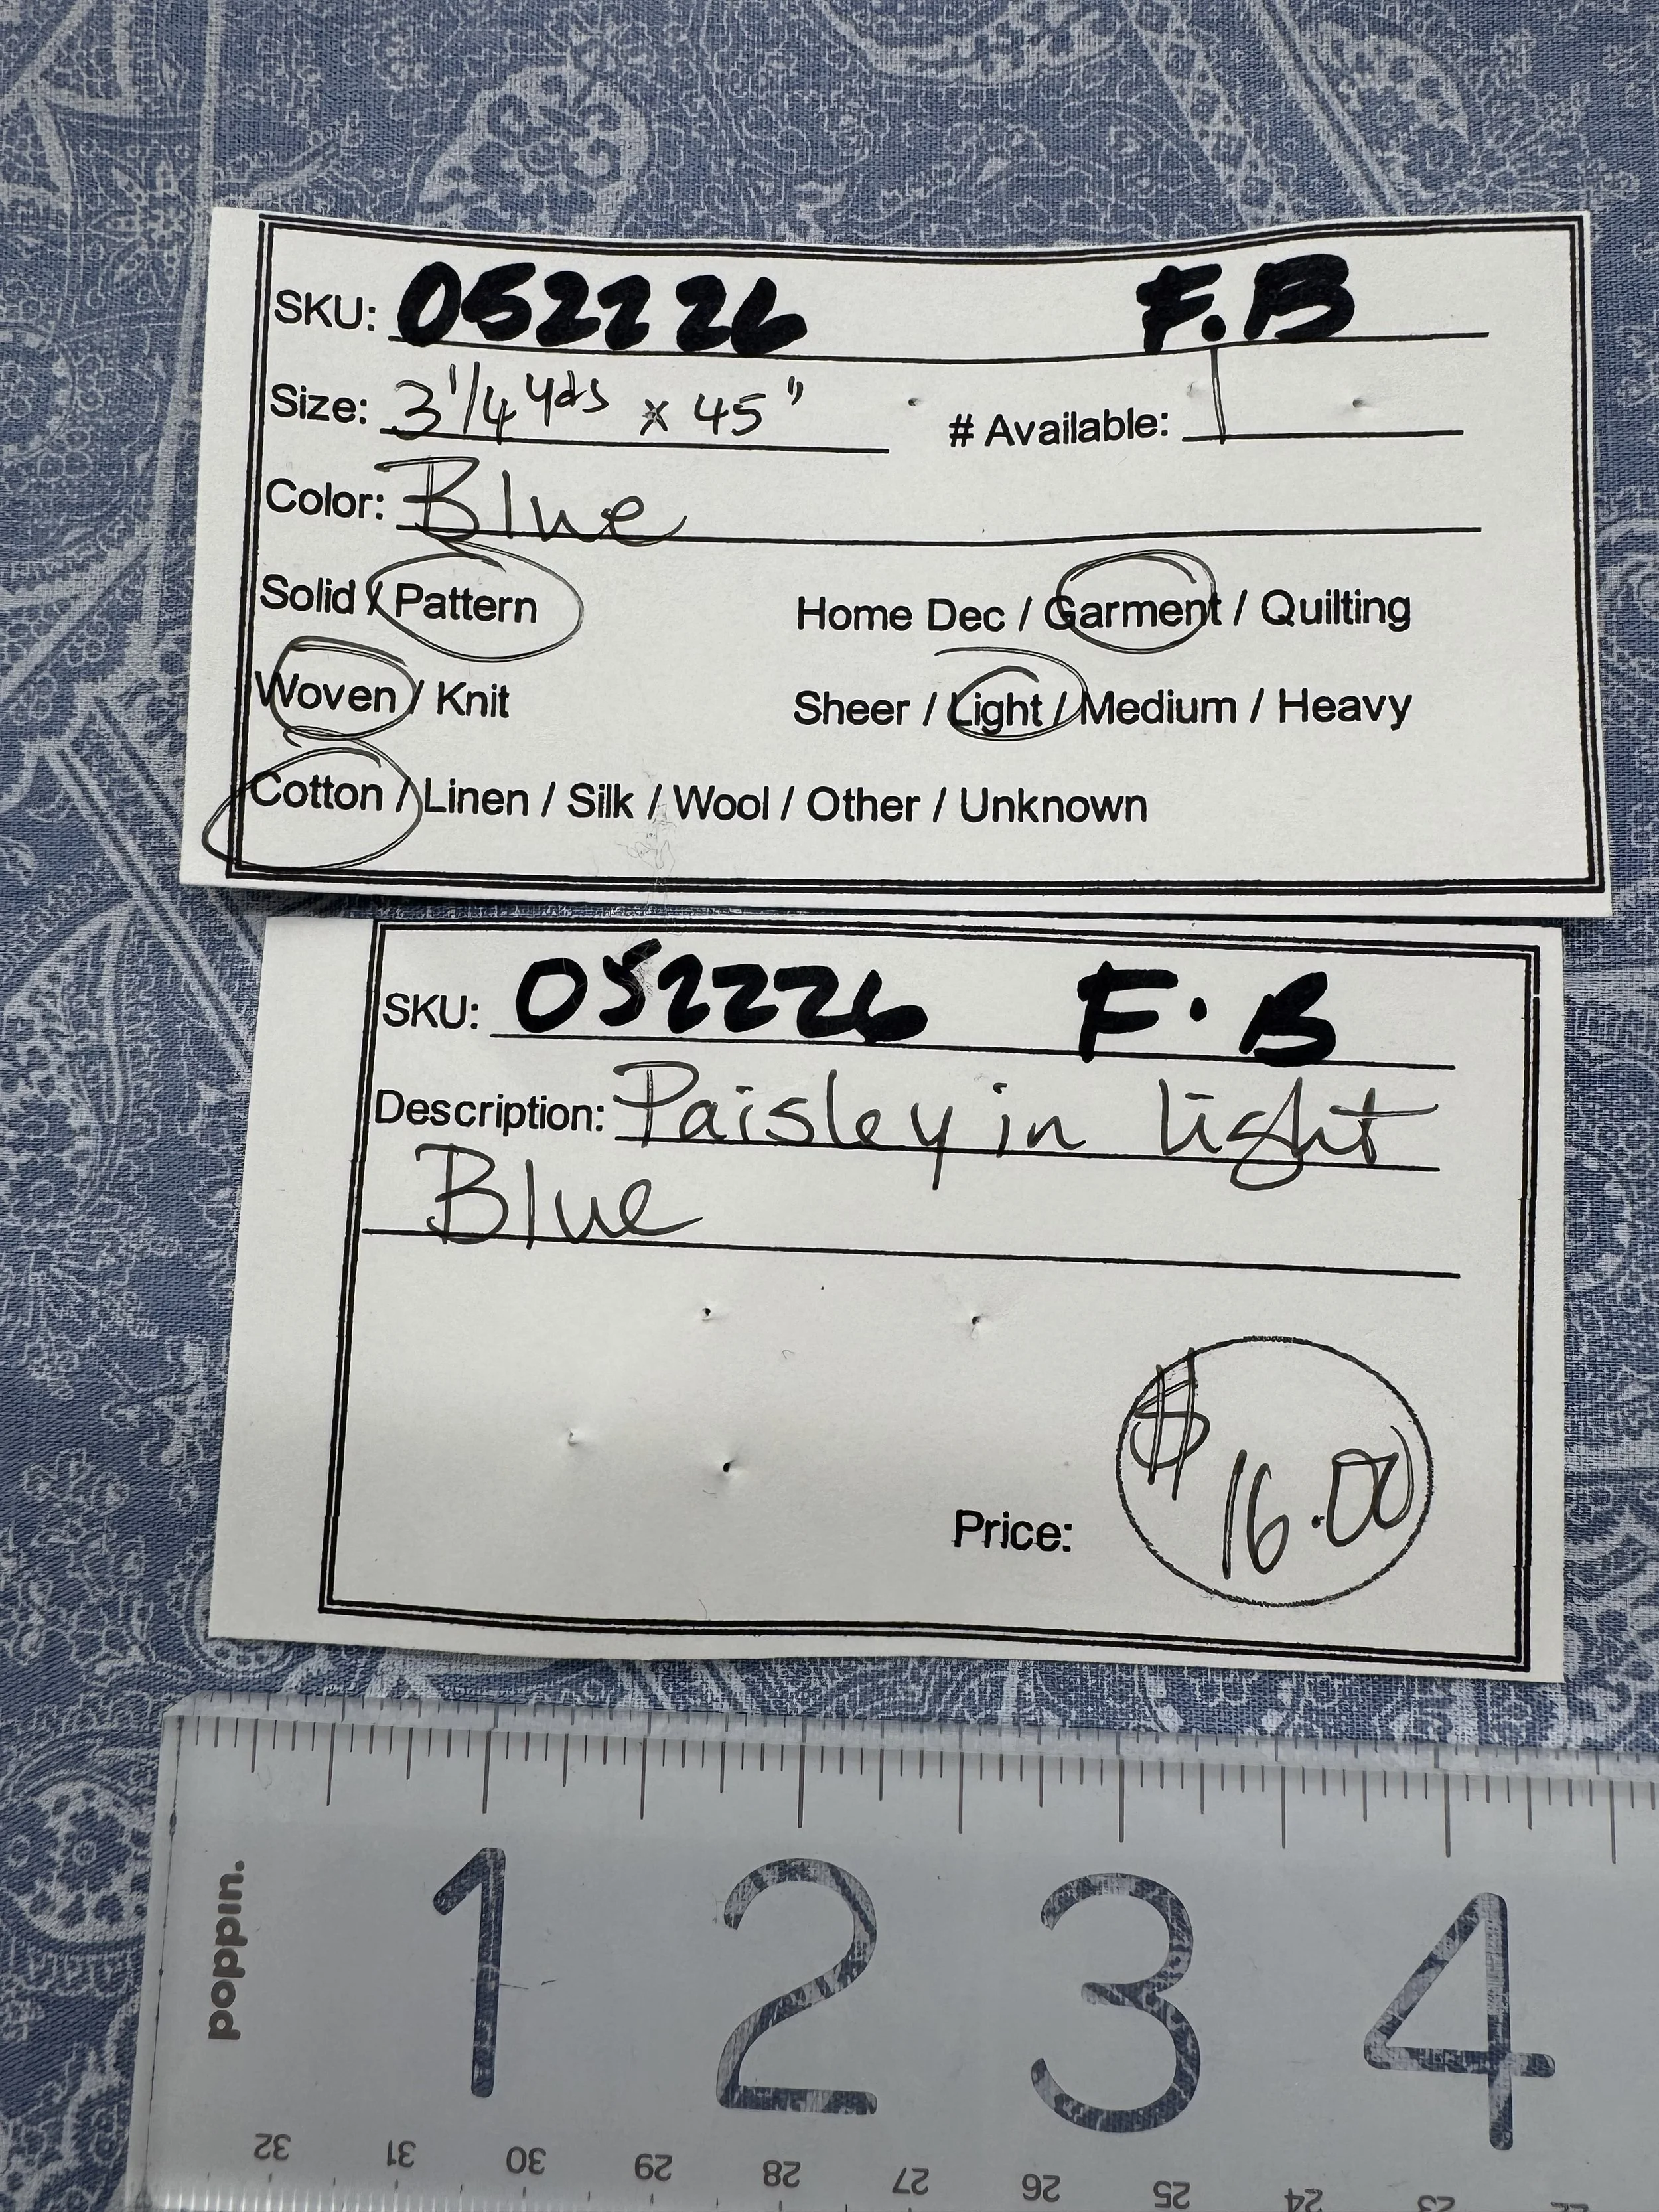 SKU: 052226 F.B
Size: 3 1/4 yds x 45" # Available: 1
Color: Blue
Solid / Pattern Home Dec / Garment / Quilting
Woven / Knit Sheer / Light / Medium / Heavy
Cotton / Linen / Silk / Wool / Other / Unknown
SKU: 052226 F.B
Description: Paisley in light
Blue
Price: $16.00
poppin.
1 2 3 4
32 31 30 29 28 27 26 25 24 23 22